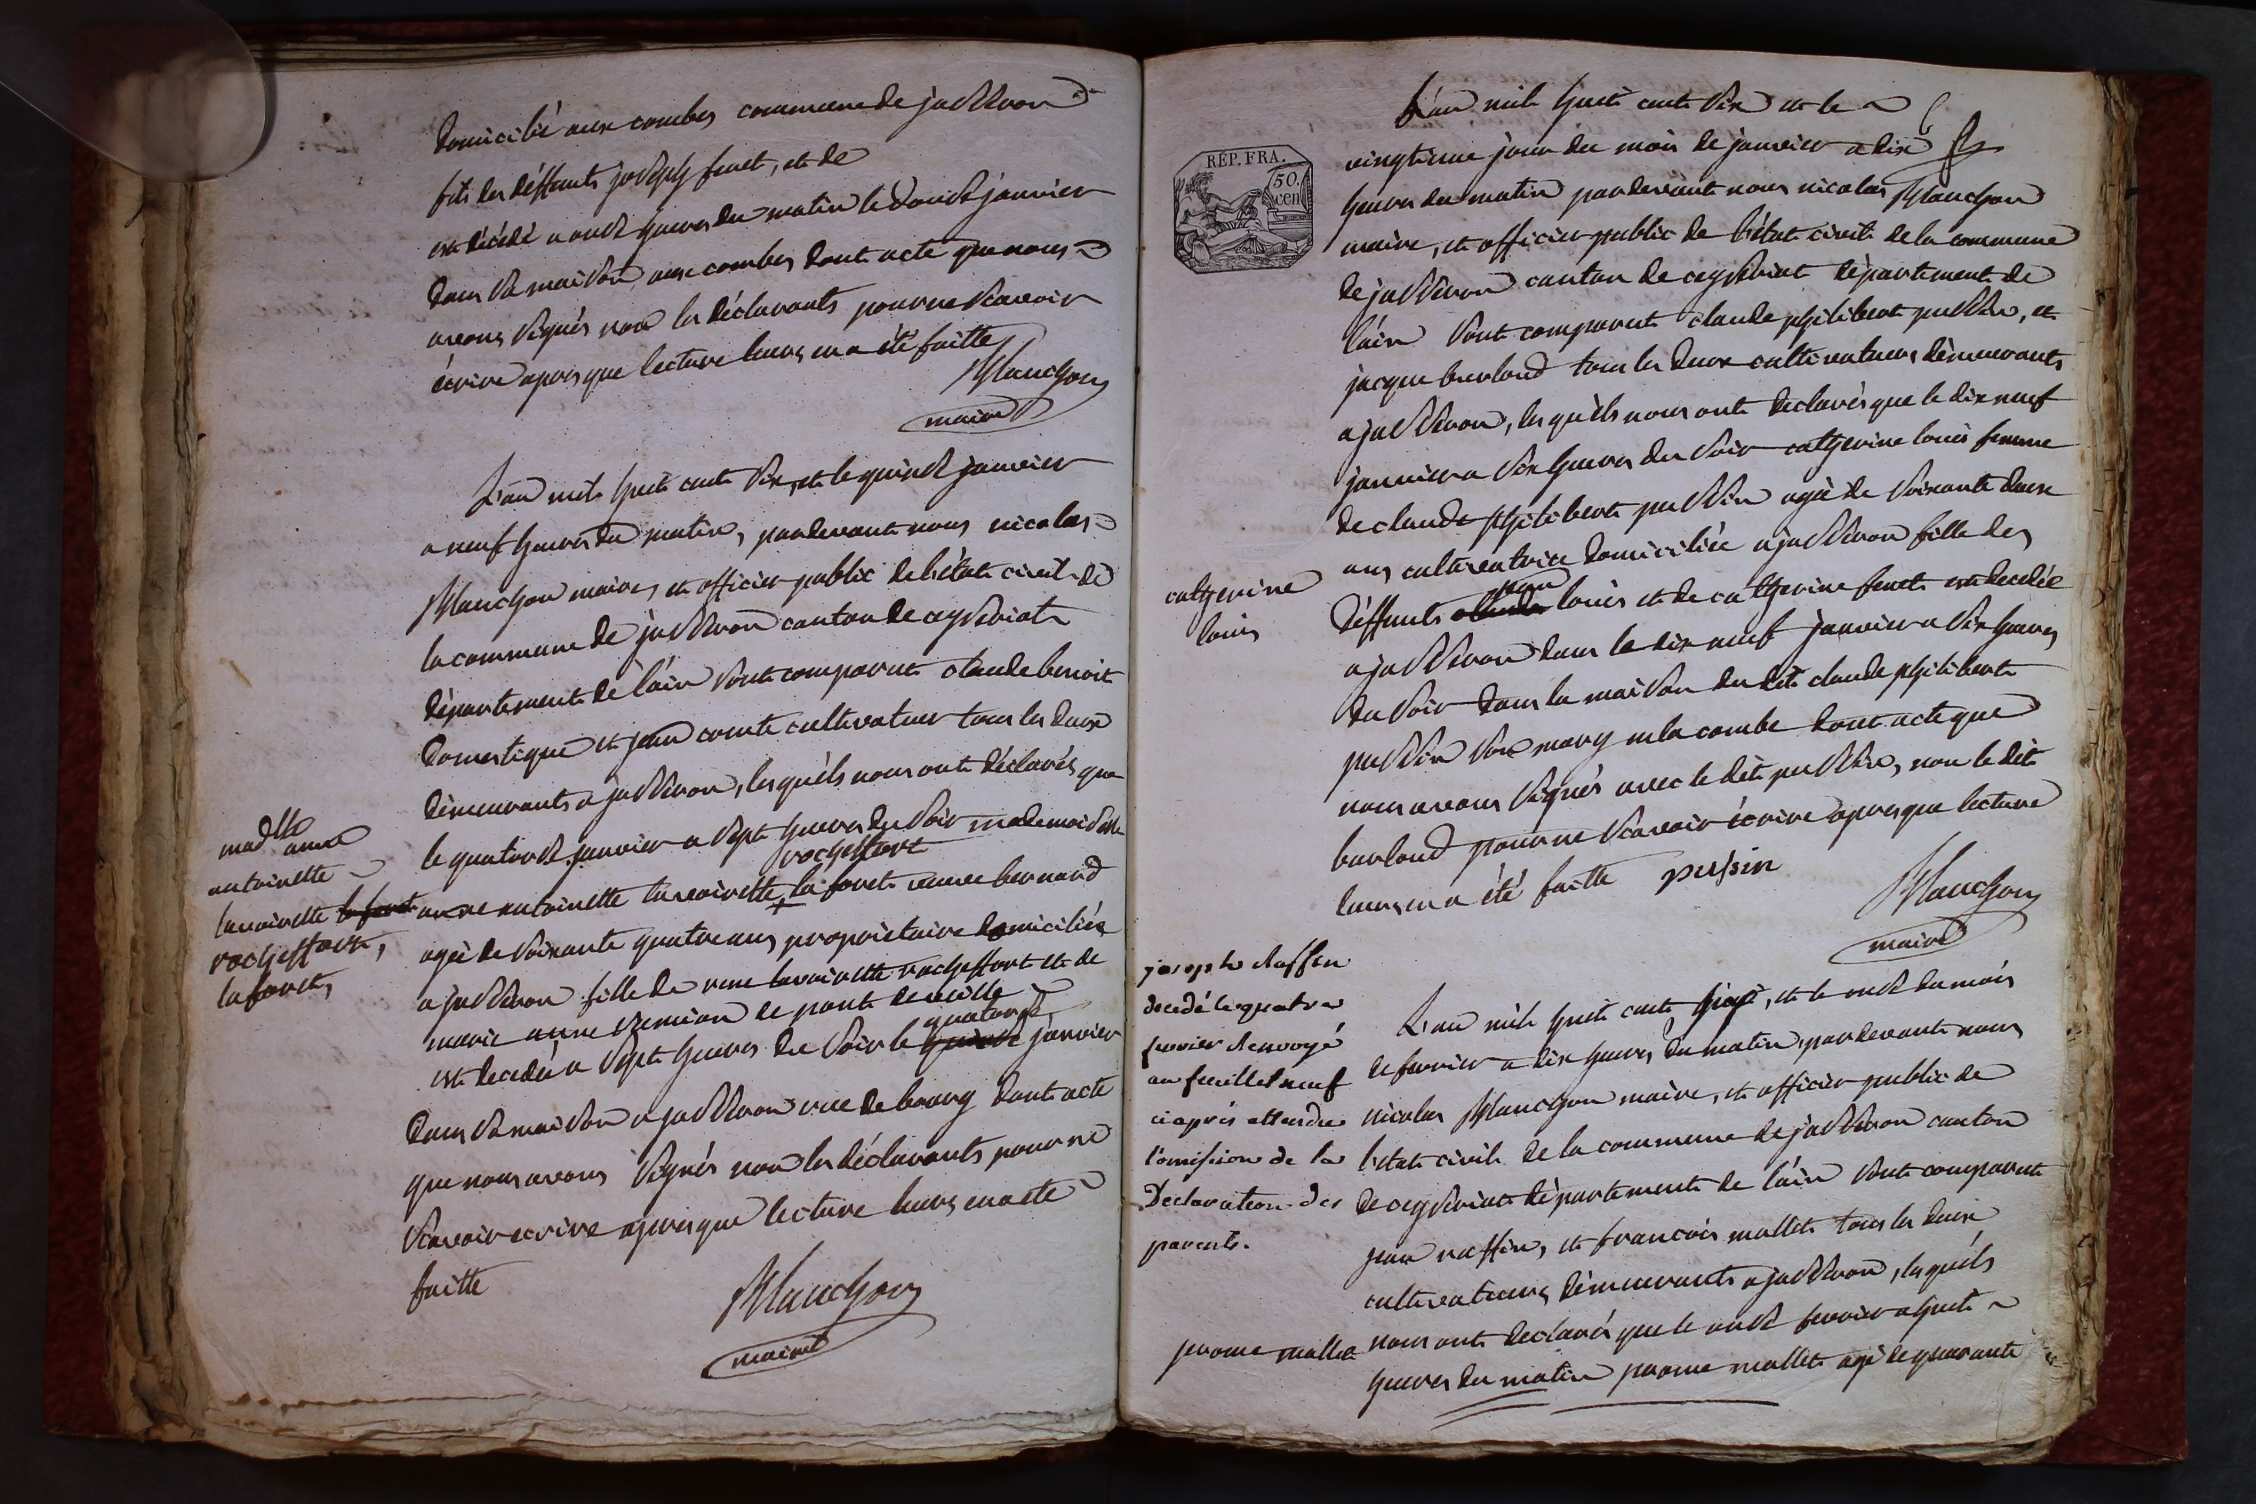 domicilié aux combes commune de jasseron
fils des déffunts joseph feuet, et de
est décédé a onze heures du matin le douze janvier
dans sa maison aux combes dont acte que nous
avons signés non les déclarants pour ne scavoir
écrire apres que lecture leurs en a été faitte
Blanchon
maire
L'an mile huit cent dix, et le quinze janvier
a neuf heures du matin, pardevant nous nicolas
Blanchon maire, et officier public de l'état civil de
la commune de jasseron canton de ceyzeriat
département de l'ain sont comparut claude benoit
domestique et jean comte cultivateur tous les deux
demeurants a jasseron, lesquèls nous ont déclarés que
le quatorze janvier a sept heures du soir mademoiselle
rocheffort
anne antoinette lavoirette + la foret veuve bernard
agée de soixante quatre ans propriétaire domiciliée
a jasseron fille de rene lavoirette rocheffort et de
marie anne de pont de veille
quatorze
est decedée a sept heures du soir le quinze janvier
dans sa maison a jasseron rue de bourg dont acte
que nous avons signés non les déclarants pour ne
scavoir ecrire apres que lecture leurs en a eté
faitte
Blanchon
maire
madlle anne
antoinette
lavoirette la foret
rocheffort,
la foret,
RÉP. FRA.
50.
cen.
L'an mile huit cent dix et le
vingtieme jour du mois de janvier a dix
heures du matin pardevant nous nicolas Blanchon
maire, et officier public de l'état civil de la commune
de jasseron canton de ceyzeriat département de
l'ain sont comparut claude philibert pussin, et
jacque burloud tous les deux cultivateurs dèmeurants
a jasseron, lesquèls nous ont declarés que le dix neuf
janvier a six heures du soir catherine louis femme
de claude philibert pussin agée de soixante deux
ans cultivatrice domiciliée a jasseron fille des
jean
déffunts claude louis et de catherine feuet est decedée
a jasseron dans le dix neuf janvier a six heures
du soir dans la maison du dit claude philibert
pussin son mary en la combe dont acte que
nous avons signés avec le dit pussin, non le dit
burloud pour ne scavoir écrire apres que lecture
leurs en a été faitte pussin
Blanchon
maire
catherine
louis
joseph Raffin
decedé le quatre
fevrier Renvoyé
au feuillet neuf
ci après attendue
l'omission de la
Declaration des
parents.
L'an mile huit cent dix, et le onze du mois
de fevrier a dix heures du matin, pardevant nous
nicolas Blanchon maire, et officier public de
l'état civil de la commune de jasseron canton
de ceyzeriat département de l'ain sont comparut
jean raffin, et francois mallet tous les deux
cultivateurs dèmeurants a jasseron, lesquèls
nous ont declarés que le onze fevrier a huit
heures du matin jerome mallet agé de quarante
jerome mallet